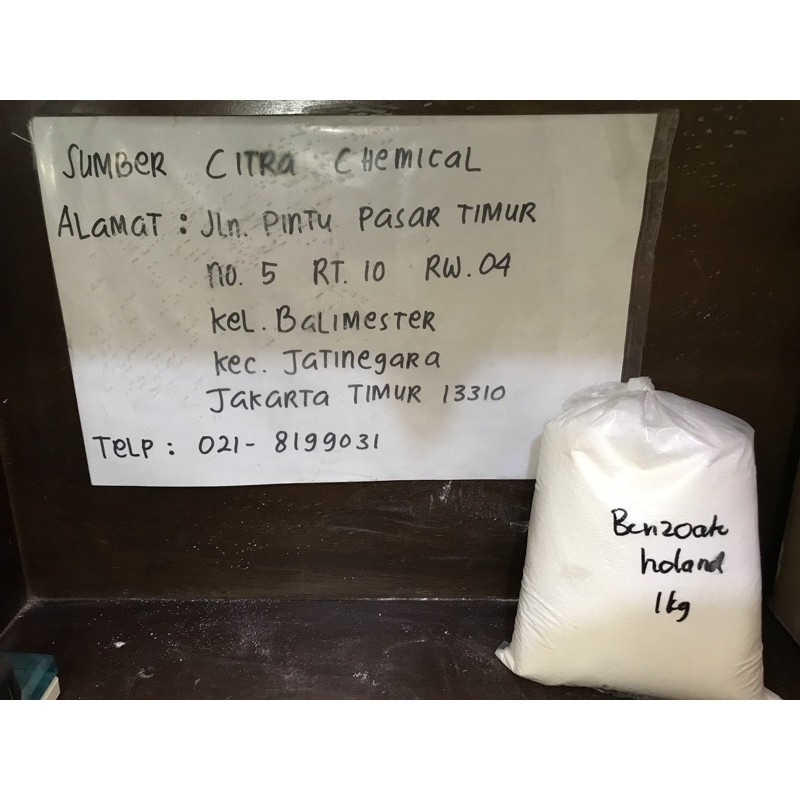 SUMBER CITRA CHEMICAL
ALAMAT : Jln. PINTU PASAR TIMUR
no. 5 RT. 10 RW. 04
Kel. BALIMESTER
Kec. JATINEGARA
JAKARTA TIMUR 13310
TELP : 021- 8199031
Benzoate
holand
1kg